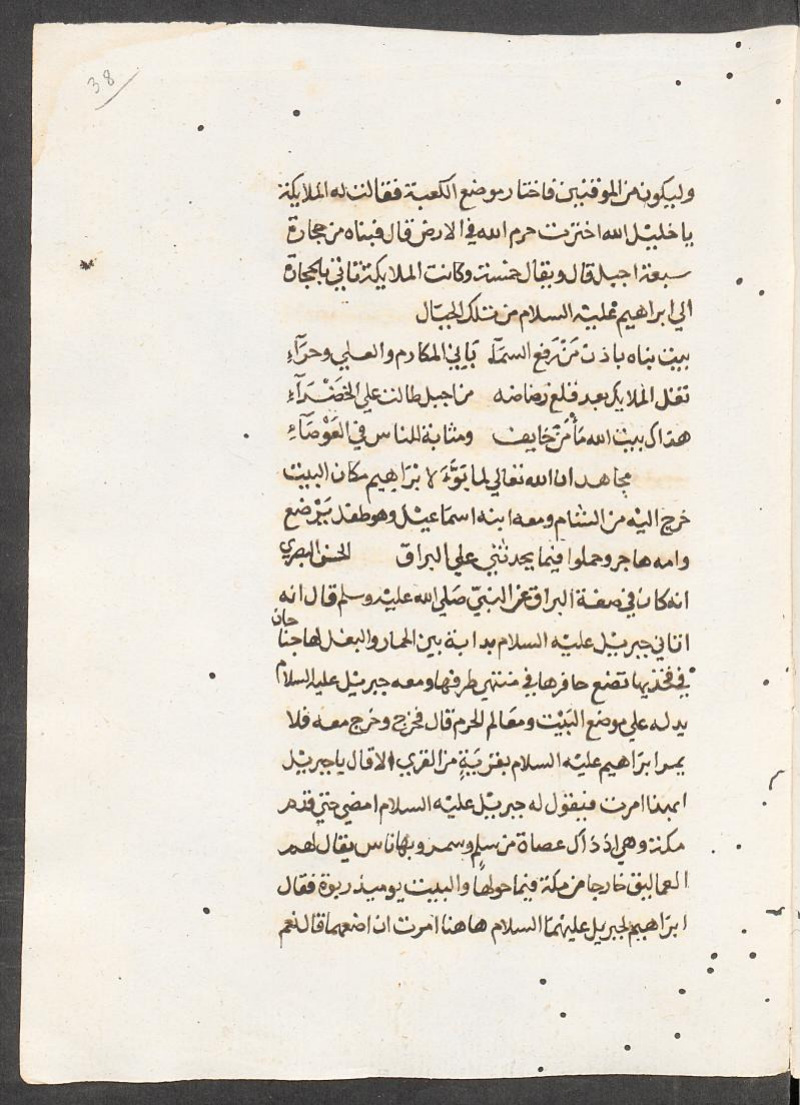 38
وليكون من الموقنين فاختار موضع الكعبة فقالت له الملايكة
يا خليل الله اخترت حرم الله في الارض قال فبناه من حجارة
سبعة اجبل قال ويقال خمسة وكانت الملايكة تاتي بالحجارة
الي ابراهيم عليه السلام من تلك الجبال
بيت بناه باذن من رفع السمآء باني المكارم والعلي وحرآء
تقل الملايك بعد قلع رضاضه من اجبل طالت علي الخضرآء
هذاك بيت الله مأمن خايف ومثابة للناس في
مجاهد ان الله تعالي لما بوَّءَ لابراهيم مكان البيت
خرج اليه من الشام ومعه ابنه اسماعيل وهو طفل يرضع
وامه هاجر وحملوا فيما يحدثني علي البراق الحسن البصري
انه كان في صفة البراق عن النبيّ صلي الله عليه وسلم قال انه
اتاني جبريل عليه السلام بدابة بين الحمار والبغل لها جناحان
في فخذيها تضع حافرها في منتهي طرفها ومعه جبريل عليه السلام
يدله علي موضع البيت ومعالم الحرم قال فخرج وخرج معه فلا
يمر ابراهيم عليه السلام بقرية من القري الا قال يا جبريل
ابهذا امرت فيقول له جبريل عليه السلام امضي حتي قدم
مكة وهي اذ ذاك عصاة من سلم وسمر وبها ناس يقال لهم
العماليق خارجا من مكة فيما حولها والبيت يوميذ ربوة فقال
ابراهيم لجبريل عليهما السلام هاهنا امرت ان اضعهما قال نعم